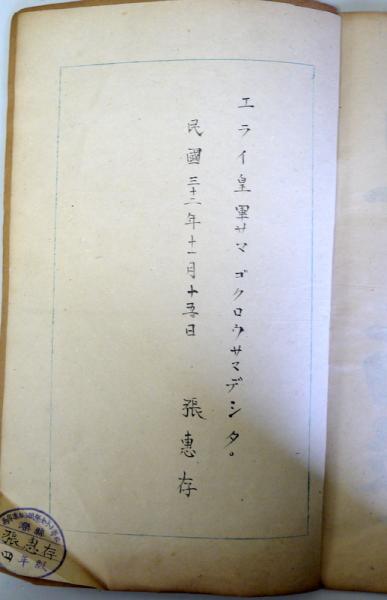 エライ皇軍サマ ゴクロウサマデシタ。
民國三十二年十一月十五日 張惠存
張惠存
四年級